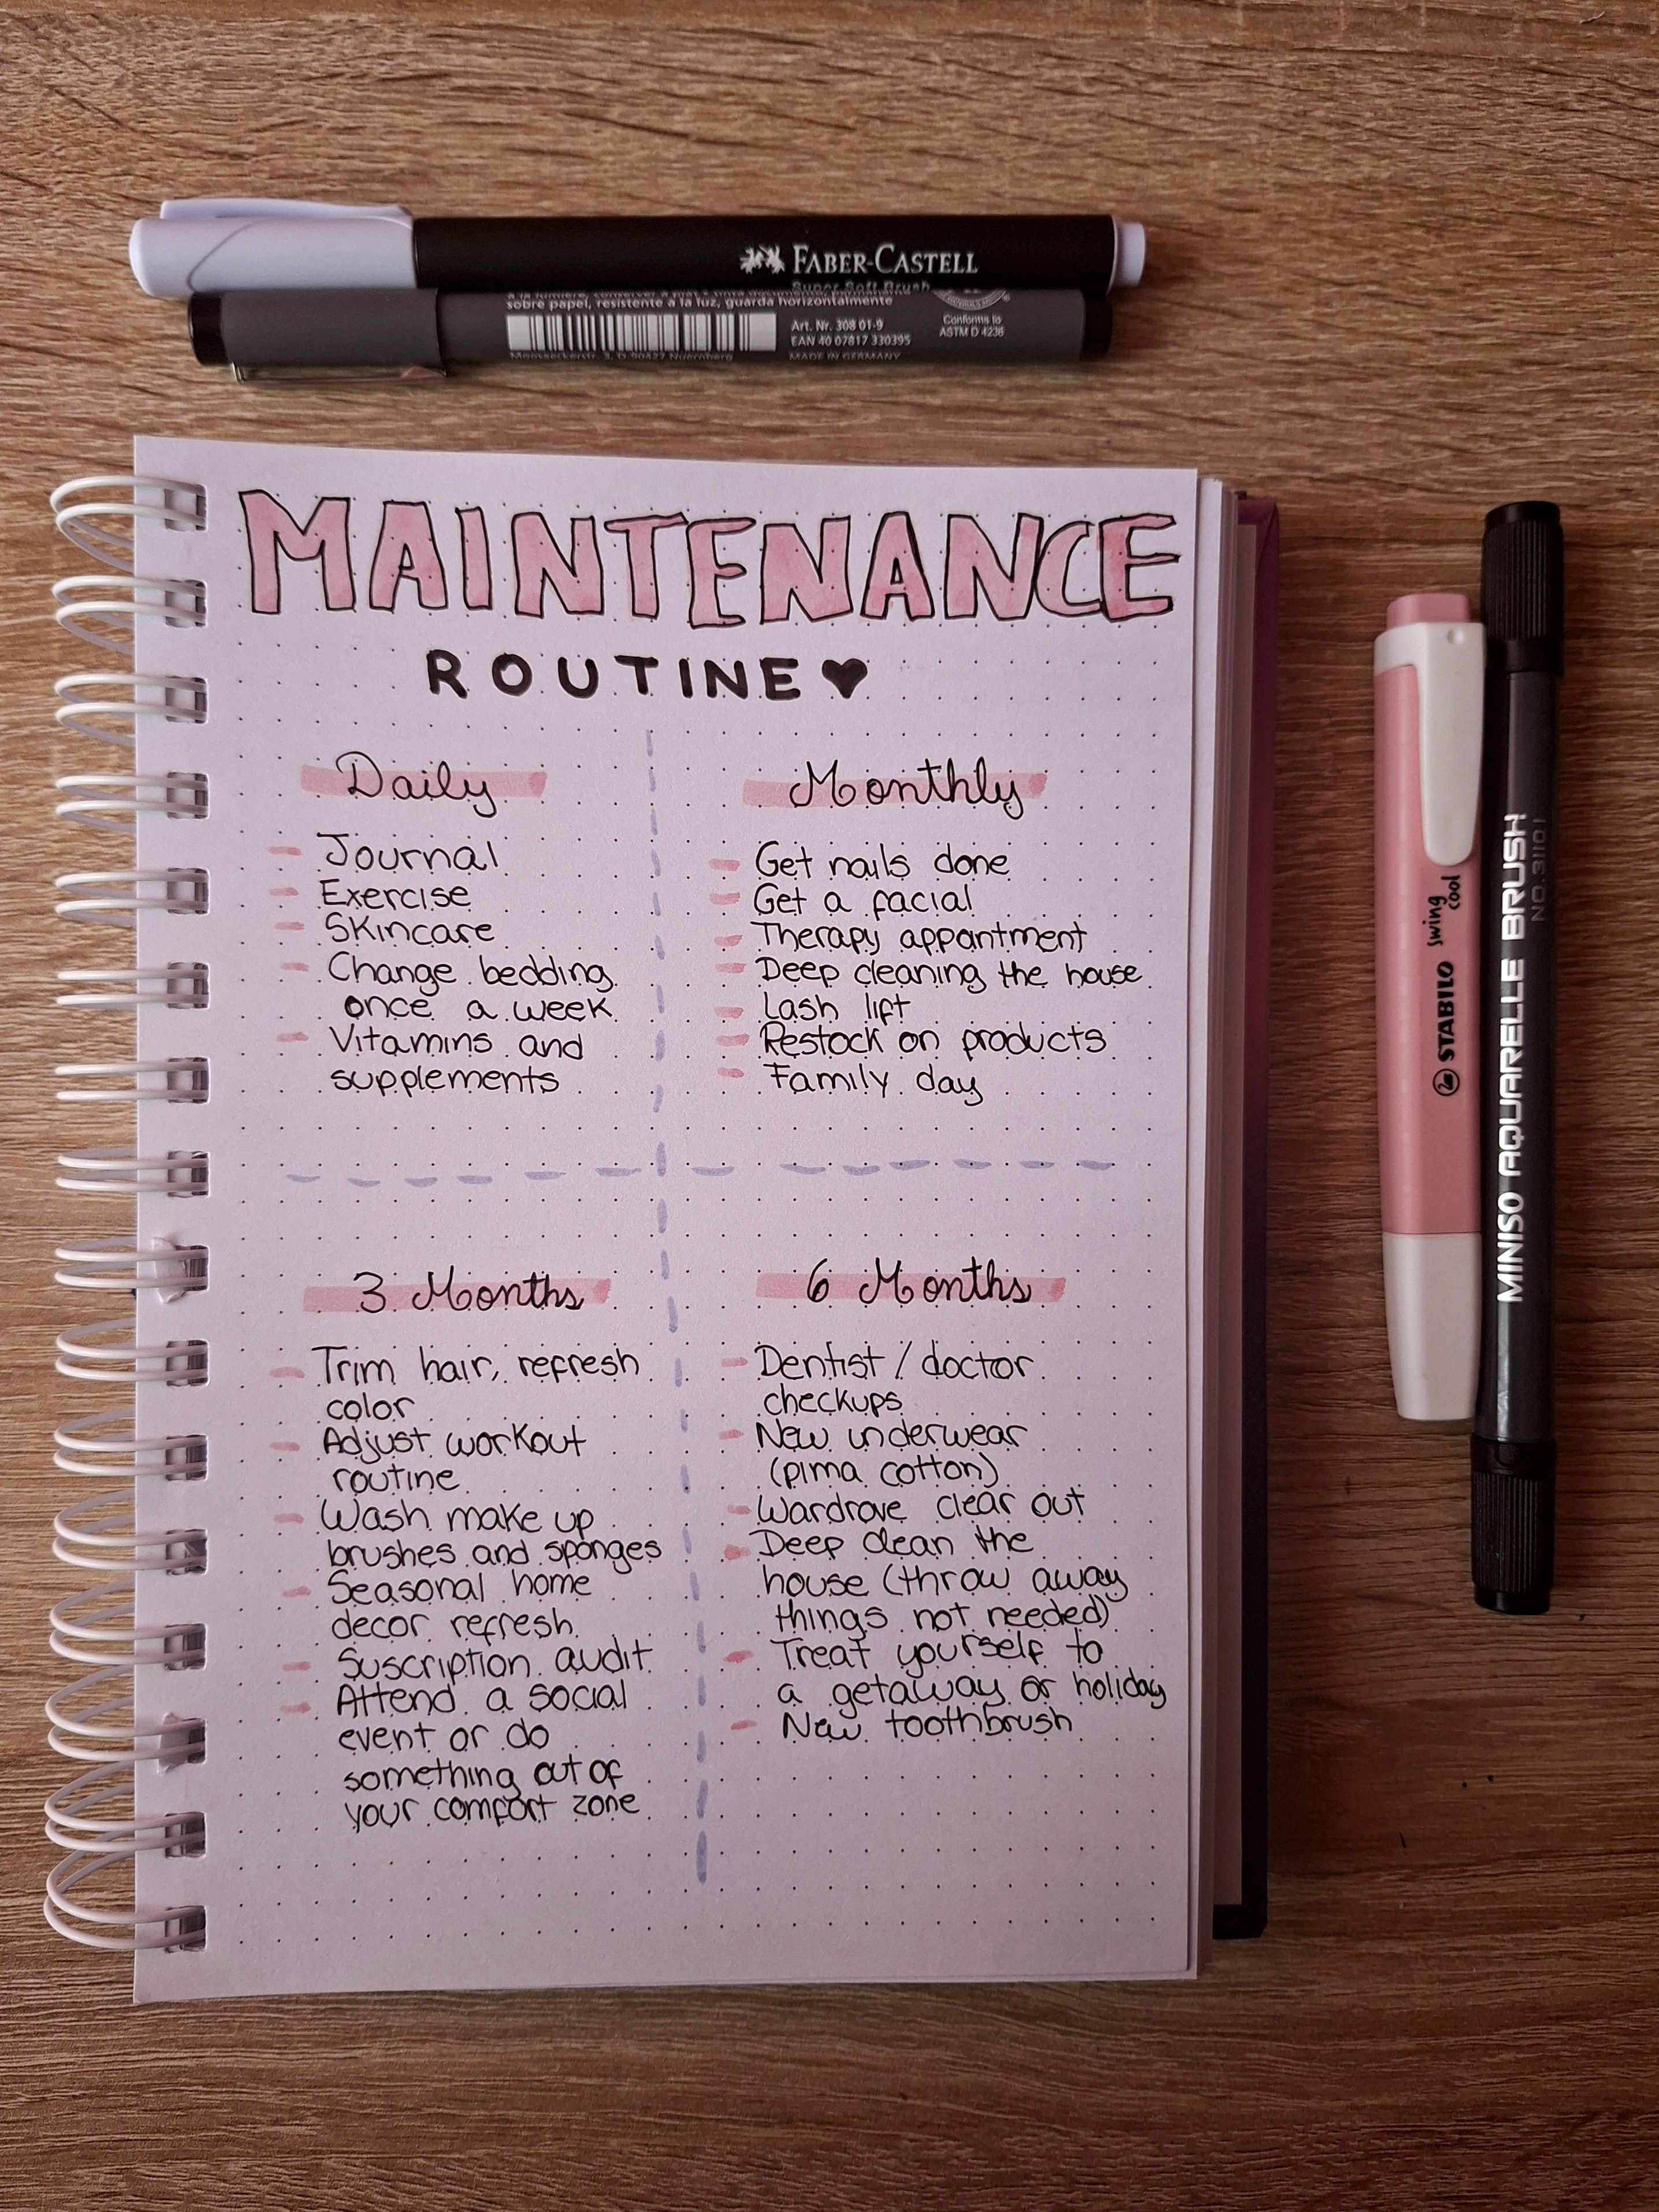 FABER-CASTELL
Super Soft Brush
sobre papel, resistente a la luz, guarda horizontalmente
Art. Nr. 308 01-9
EAN 40 07817 330395
MADE IN GERMANY
Moosaeckerstr. 3, D-90427 Nuernberg
Conforms to
ASTM D 4236
MAINTENANCE
ROUTINE♥
Daily
- Journal
- Exercise
- Skincare
- Change bedding
once a week
- Vitamins and
supplements
Monthly
- Get nails done
- Get a facial
- Therapy appantment
- Deep cleaning the house
- Lash lift
- Restock on products
- Family day
3 Months
- Trim hair, refresh
color
- Adjust workout
routine
- Wash make up
brushes and sponges
- Seasonal home
decor refresh
- Suscription audit
- Attend a social
event or do
something out of
your comfort zone
6 Months
- Dentist / doctor
checkups
- New underwear
(pima cotton)
- Wardrove clear out
- Deep clean the
house (throw away
things not needed)
- Treat yourself to
a getaway or holiday
- New toothbrush
STABILO swing cool
MINISO AQUARELLE BRUSH
NO.31101